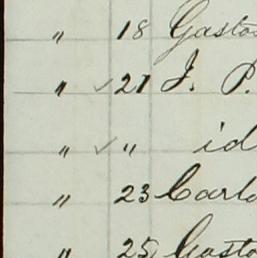 " 18 Gasto
" ✓ 21 J. P.
" ✓ " id
" 23 Carlo
" 25 Gasto